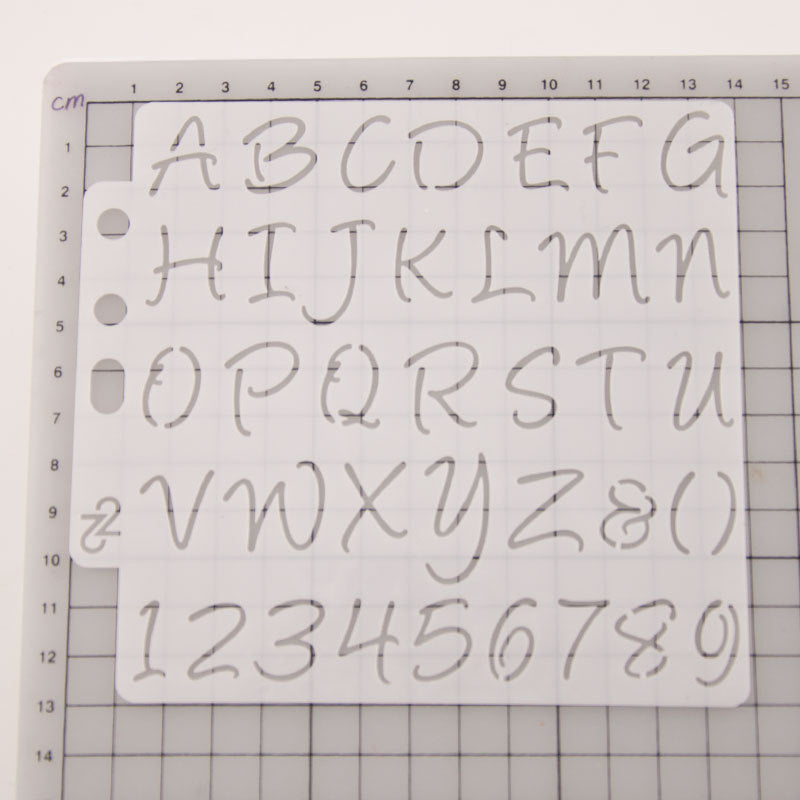 1 2 3 4 5 6 7 8 9 10 11 12 13 14 15
cm
1
2
3
4
5
6
7
8
9
10
11
12
13
14
A B C D E F G
H I J K L M N
O P Q R S T U
V W X Y Z & ( )
1 2 3 4 5 6 7 8 9